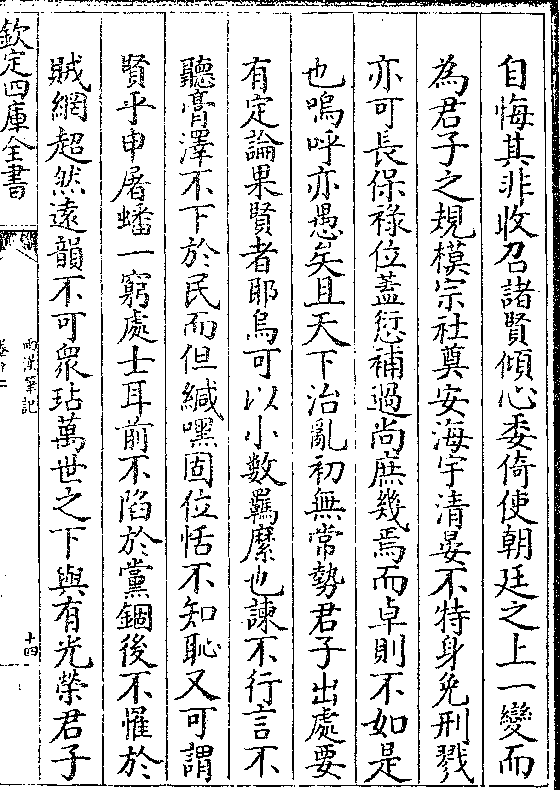 自悔其非收召諸賢傾心委倚使朝廷之上一變而
為君子之規模宗社奠安海宇清晏不特身免刑戮
亦可長保祿位蓋愆補過尚庶幾焉而卓則不如是
也嗚呼亦愚矣且天下治亂初無常勢君子出處要
有定論果賢者耶烏可以小數羈縻也諫不行言不
聽膏澤不下於民而但緘嘿固位恬不知恥又可謂
賢乎申屠蟠一窮處士耳前不陷於黨錮後不懼於
賊網超然遠韻不可衆玷萬世之下與有光榮君子
欽定四庫全書
兩漢筆記
十四